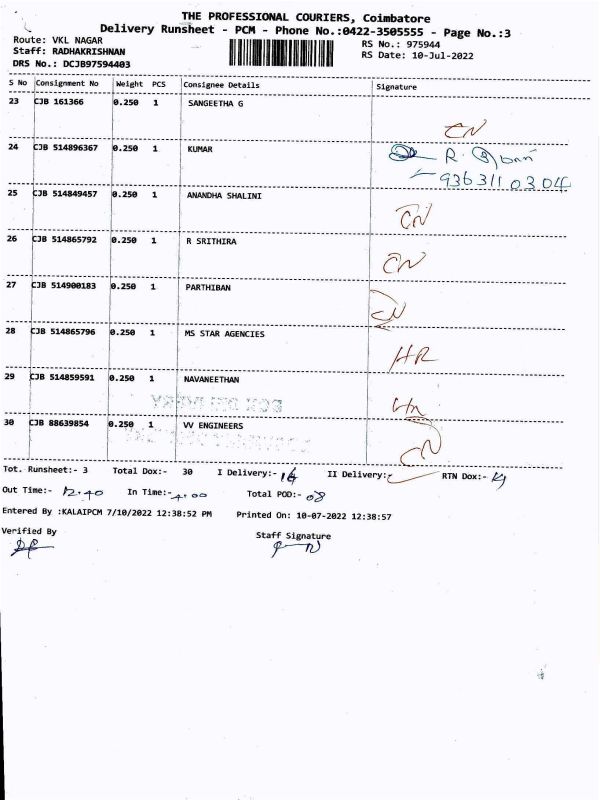 THE PROFESSIONAL COURIERS, Coimbatore
Delivery Runsheet - PCM - Phone No.:0422-3505555 - Page No.:3
Route: VKL NAGAR
RS No.: 975944
Staff: RADHAKRISHNAN
RS Date: 10-Jul-2022
DRS No.: DCJB97594403
S No Consignment No Weight PCS Consignee Details Signature
23 CJB 161366 0.250 1 SANGEETHA G CN
24 CJB 514896367 0.250 1 KUMAR R.
9363110304
25 CJB 514849457 0.250 1 ANANDHA SHALINI CN
26 CJB 514865792 0.250 1 R SRITHIRA CN
27 CJB 514900183 0.250 1 PARTHIBAN CN
28 CJB 514865796 0.250 1 MS STAR AGENCIES HR
29 CJB 514859591 0.250 1 NAVANEETHAN
30 CJB 88639854 0.250 1 VV ENGINEERS CN
Tot. Runsheet:- 3 Total Dox:- 30 I Delivery:- II Delivery:- RTN Dox:-
Out Time:- 12.40 In Time:- 4.00 Total POD:- 08
Entered By :KALAIPCM 7/10/2022 12:38:52 PM Printed On: 10-07-2022 12:38:57
Verified By
Staff Signature